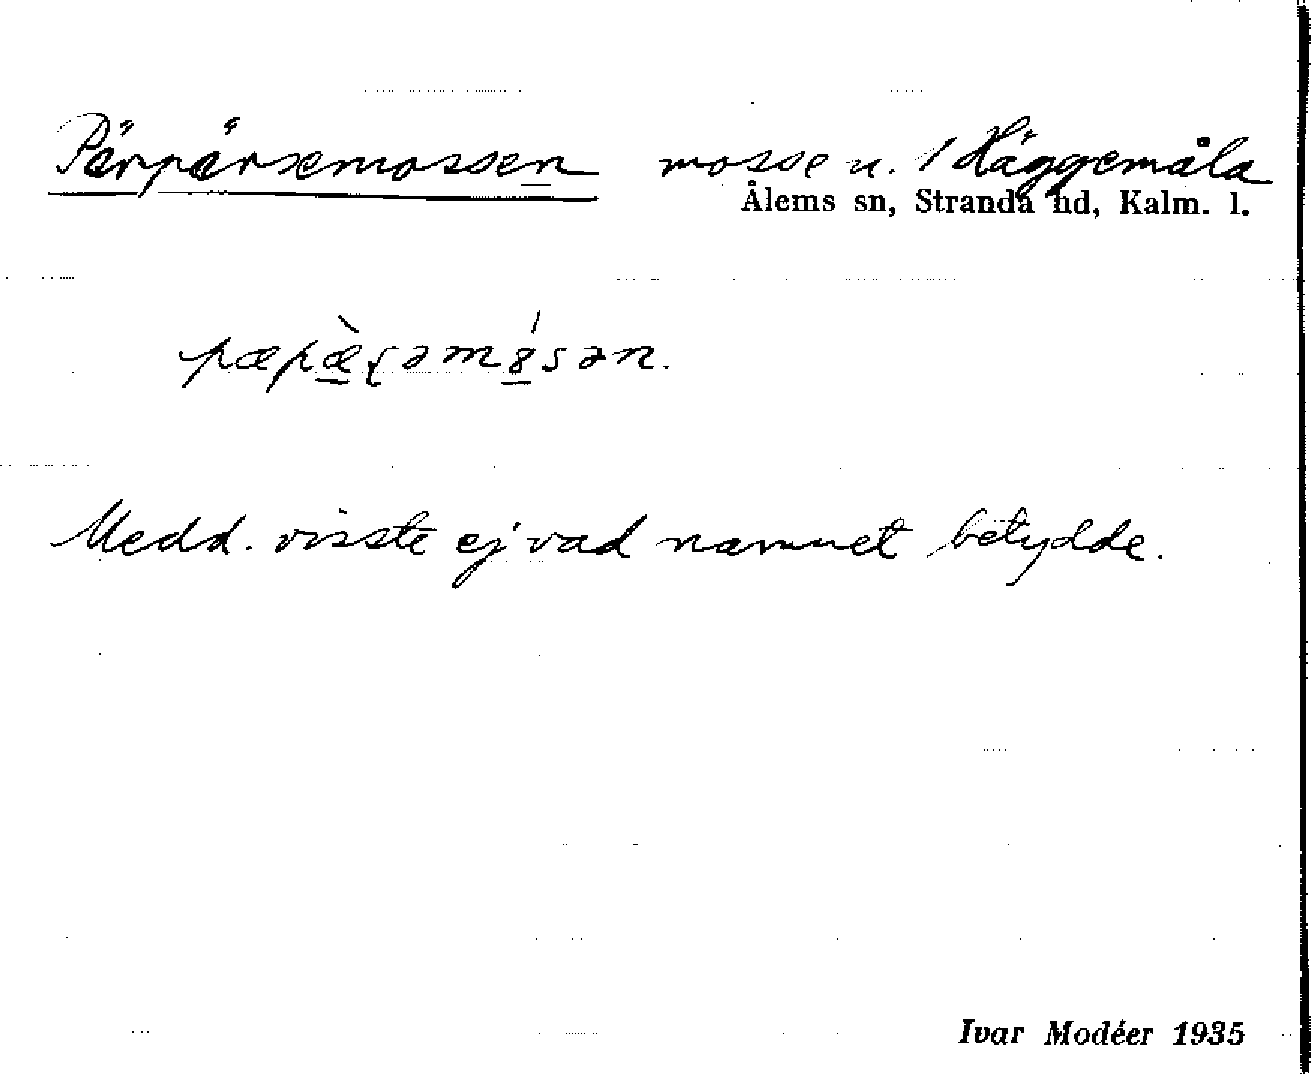 Pärpärsemossen mosse u. 1 Häggemåla
Ålems sn, Stranda hd, Kalm. l.
pæpæ̀ʂəm8́sən.
Medd. visste ej vad namnet betydde.
Ivar Modéer 1935